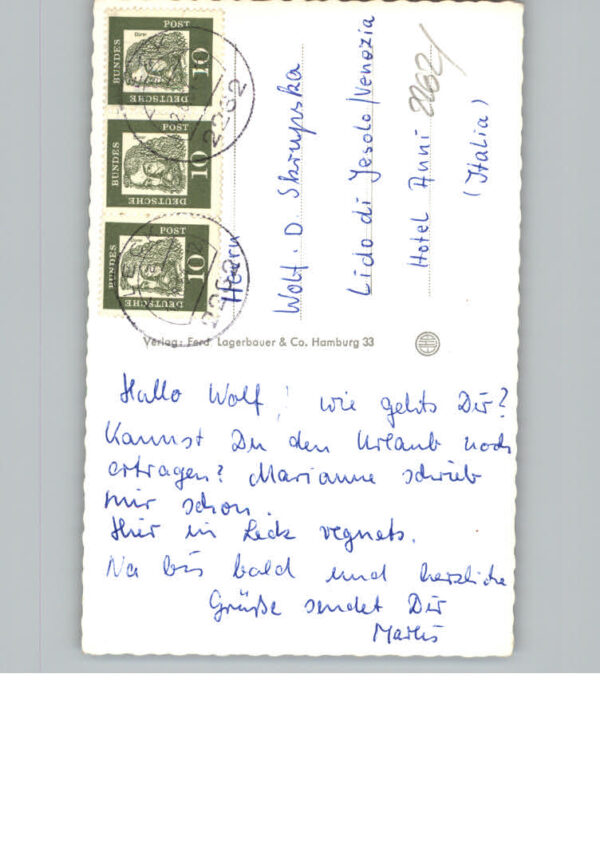 Hallo Wolf! Wie gehts Dir?
Kannst Du den Urlaub noch
ertragen? Marianne schrieb
mir schon.
Hier in Leck regnets.
Na bis bald und herzliche
Grüße sendet Dir
Marlis
Verlag: Ferd. Lagerbauer & Co. Hamburg 33
Herrn
Wolf. D. Skrupska
Lido di Jesolo/Venezia
Hotel Anni
(Italia)
DEUTSCHE
BUNDES
POST
10
Dürer
DEUTSCHE
BUNDES
POST
10
DEUTSCHE
BUNDES
POST
10
2262
2262